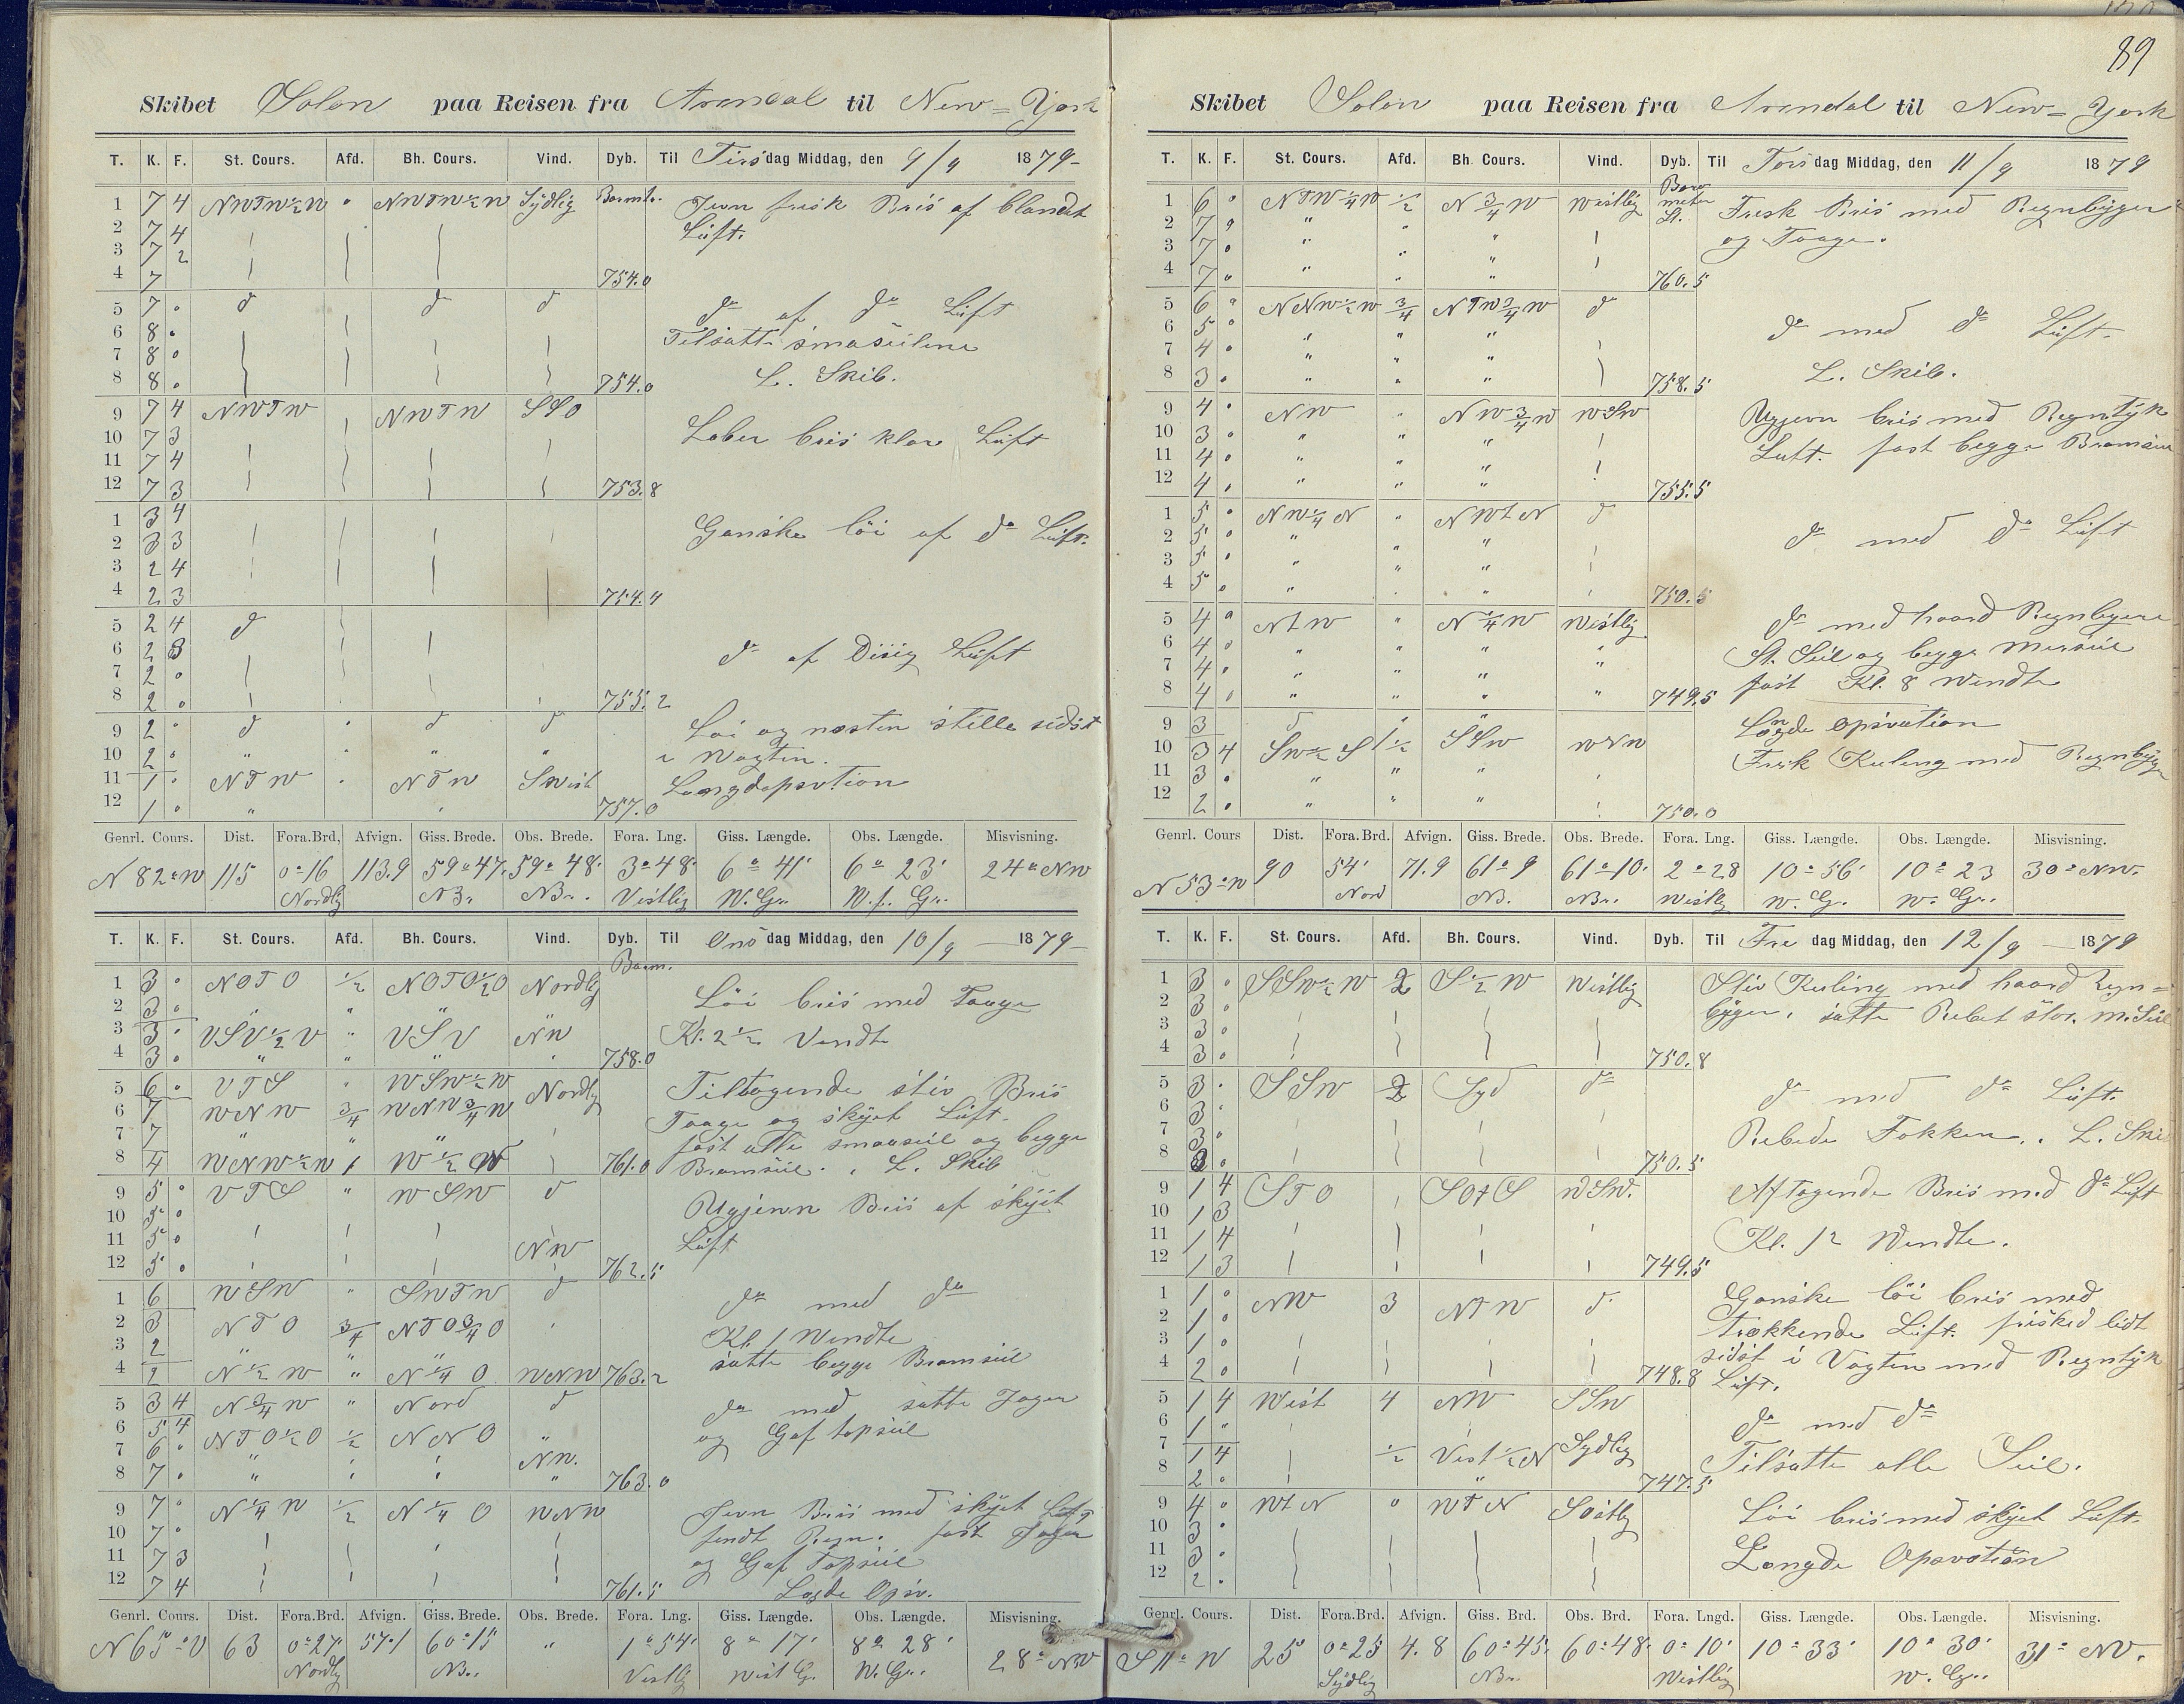 89
Skibet Solon paa Reisen fra Arendal til New=York
T. K. F. St. Cours. Afd. Bh. Cours. Vind. Dyb. Til Tirsdag Middag, den 9/9 1879-
1 7 4 NWTW½W " NWTW½W Sÿdlig Barmtr. Jevn frisk Bris af blandet
2 7 4 Lüft.
3 7 2
4 7 754.0
5 7 " d d d do af do Lüft
6 8 " Tilsatte smaseilene
7 8 "
8 8 " 754.0 L. Skib.
9 7 4 NWTW NWTW SSO
10 7 3 Laber bris klar Lüft
11 7 4
12 7 3 753.8
1 3 4
2 3 3 Ganske löi af do Lüft.
3 2 4
4 2 3 754.4
5 2 4 d
6 2 3 do af Disig Lüft
7 2 "
8 2 " 755.2
9 2 " d " d d Löi og næsten stille sidst
10 2 " " " " " i Vagten.
11 1 " NTW " NTW SWest Længdopsvtion
12 1 " " 757.0
Genrl. Cours. Dist. Fora.Brd. Afvign. Giss. Brede. Obs. Brede. Fora. Lng. Giss. Længde. Obs. Længde. Misvisning.
N 82° W 115 0°16 113.9 59°47' 59°48' 3°48' 6° 41' 6° 23' 24° NW
Nordlig NBr. NBr. Vestlig W.Gr. W.f. Gr.
T. K. F. St. Cours. Afd. Bh. Cours. Vind. Dyb. Til Onsdag Middag, den 10/9 1879-
1 3 " NOTO ½ NOTO½O Nordlig Barm.
2 3 " " " " Löi bris med Taage
3 3 " VSV½V " VSV NW Kl. 2½ Vendte
4 3 " " " " " 758.0
5 6 " VTS " WSW½W Nordlig Tiltagende stiv Bris
6 7 WNW ¾ WNW¾W Taage og skÿet Lüft.
7 7 " " " fast alle smaaseil og begge
8 4 WNW½W 1 W½W 761.0 Bramseil. L. Skib
9 5 " VTS " WSW d Ugjevn Bris af skÿet
10 5 "
11 5 " NW Lüft
12 5 " 762.5
1 6 WSW " SWTW d do med do
2 3 NTO ¾ NTO¾O Kl. 1 Wendte
3 2 " " satte begge Bramseil
4 2 N½W " N¼O WNW 763.2
5 3 4 N¾W " Nord d do med satte Jager
6 5 4 NTO½O ½ NNO " og Gaf topseil
7 6 " " NW.
8 7 " " " 763.0
9 7 " N¼W ½ N¼O WNW Jevn Bris med skÿet Luft
10 7 " fendt Regn. fast Jager
11 7 3 og Gaf Topseil
12 7 4 761.5 Lngde Opsv.
Genrl. Cours. Dist. Fora.Brd. Afvign. Giss. Brede. Obs. Brede. Fora. Lng. Giss. Længde. Obs. Længde. Misvisning.
N 65° V 63 0°27' 57.1 60°15 " 1°54' 8° 17' 8° 28' 28° NW
Nordlig NBr. Vestlig West G. W. Gr.
Skibet Solon paa Reisen fra Arendal til New=York
T. K. F. St. Cours. Afd. Bh. Cours. Vind. Dyb. Til Torsdag Middag, den 11/9 1879
1 6 " NTW¼W ½ N¾W westlig Baro meter St. Frisk Bris med Regnbÿger
2 7 " " " "
3 7 " " " " og Taage.
4 7 " " " " 760.5
5 6 " NNW½W ¾ NTW¾W d
6 5 " " " " do med do Lüft.
7 4 " " " "
8 3 " " " " 758.5 L. Skib.
9 4 " NW " NW¾W WSW Ugjevn bris med Regntÿk
10 3 " " " " Luft. fast begge Bramseil
11 4 " " " "
12 4 " " " " 755.5
1 5 " NW¼N " NWtN d
2 5 " " " " do med do Lüft
3 5 " " " "
4 5 " " " " 750.5
5 4 " NtW " N¼W Westlig do med haard Regnbyger
6 4 " " " " " St. Seil og begge Merseil
7 4 " " " " "
8 4 " " " " " 749.5 fast Kl. 8 Wendte
9 3 d " " Lngde opsvation
10 3 4 SW½S 1½ SSW WNW Frisk Kuling med Regnbÿge
11 3 " " " "
12 2 " " " " 750.0
Genrl. Cours Dist. Fora.Brd. Afvign. Giss. Brede. Obs. Brede. Fora. Lng. Giss. Længde. Obs. Længde. Misvisning.
N 53° W 90 54' 71.9 61°9 61°10' 2°28 10°56' 10°23 30° NW.
Nord NB. NBr. Westlig W. G. W. Gr.
T. K. F. St. Cours. Afd. Bh. Cours. Vind. Dyb. Til Fredag Middag, den 12/9 1879
1 3 " SSW½W 2 S½W Westlig Stiv Kuling med haard Regn=
2 3 " bÿger. satte Rebet stor. M.Seil
3 3 "
4 3 " 750.8
5 3 " SSW 2 Syd do
6 3 " do med do Lüft.
7 3 " Rebede Fokken. L. Ski
8 3 " 750.5
9 1 4 STO SOtS WSW. Aftagende Bris med do Lüft
10 1 3
11 1 4 Kl. 12 Wendte.
12 1 3 749.5
1 1 " NW 3 NTW d. Ganske löi bris med
2 1 " trækkende Lüft. frisked lidt
3 1 " sidst i Vagten med Regntÿk
4 2 " 748.8 Lüft.
5 1 4 West 4 NW SSW
6 1 " do med do
7 1 4 ½ Vest½N Sydlig
8 2 " " 747.5 Tilsatte alle Seil.
9 4 " WtN " WTN Sostlig Löi bris med skÿet Lüft.
10 3 "
11 3 " Længde Opsvation
12 2 "
Genrl. Cours. Dist. Fora.Brd. Afvign. Giss. Brd. Obs. Brd. Fora. Lngd. Giss. Længde. Obs. Længde. Misvisning.
S 11° W 25 0°25 4.8 60°45' 60°48' 0°10' 10°33' 10°30' 31° NV.
Sÿdlig NBr. Westlig W. Gr.